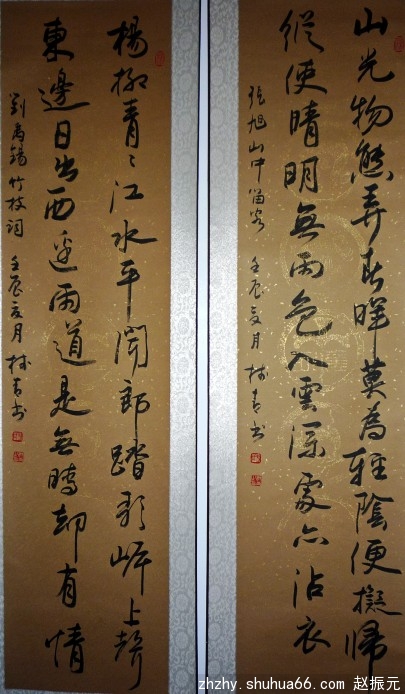 山光物態弄春暉莫為輕陰便擬歸
縱使晴明無雨色入雲深處亦沾衣
張旭山中留客 壬辰夏月 青书
楊柳青々江水平聞郎踏歌岸上聲
東邊日出西邊雨道是無時却有情
劉禹錫竹枝詞 壬辰夏月 青书
zhzhy.shuhua66.com 赵振元